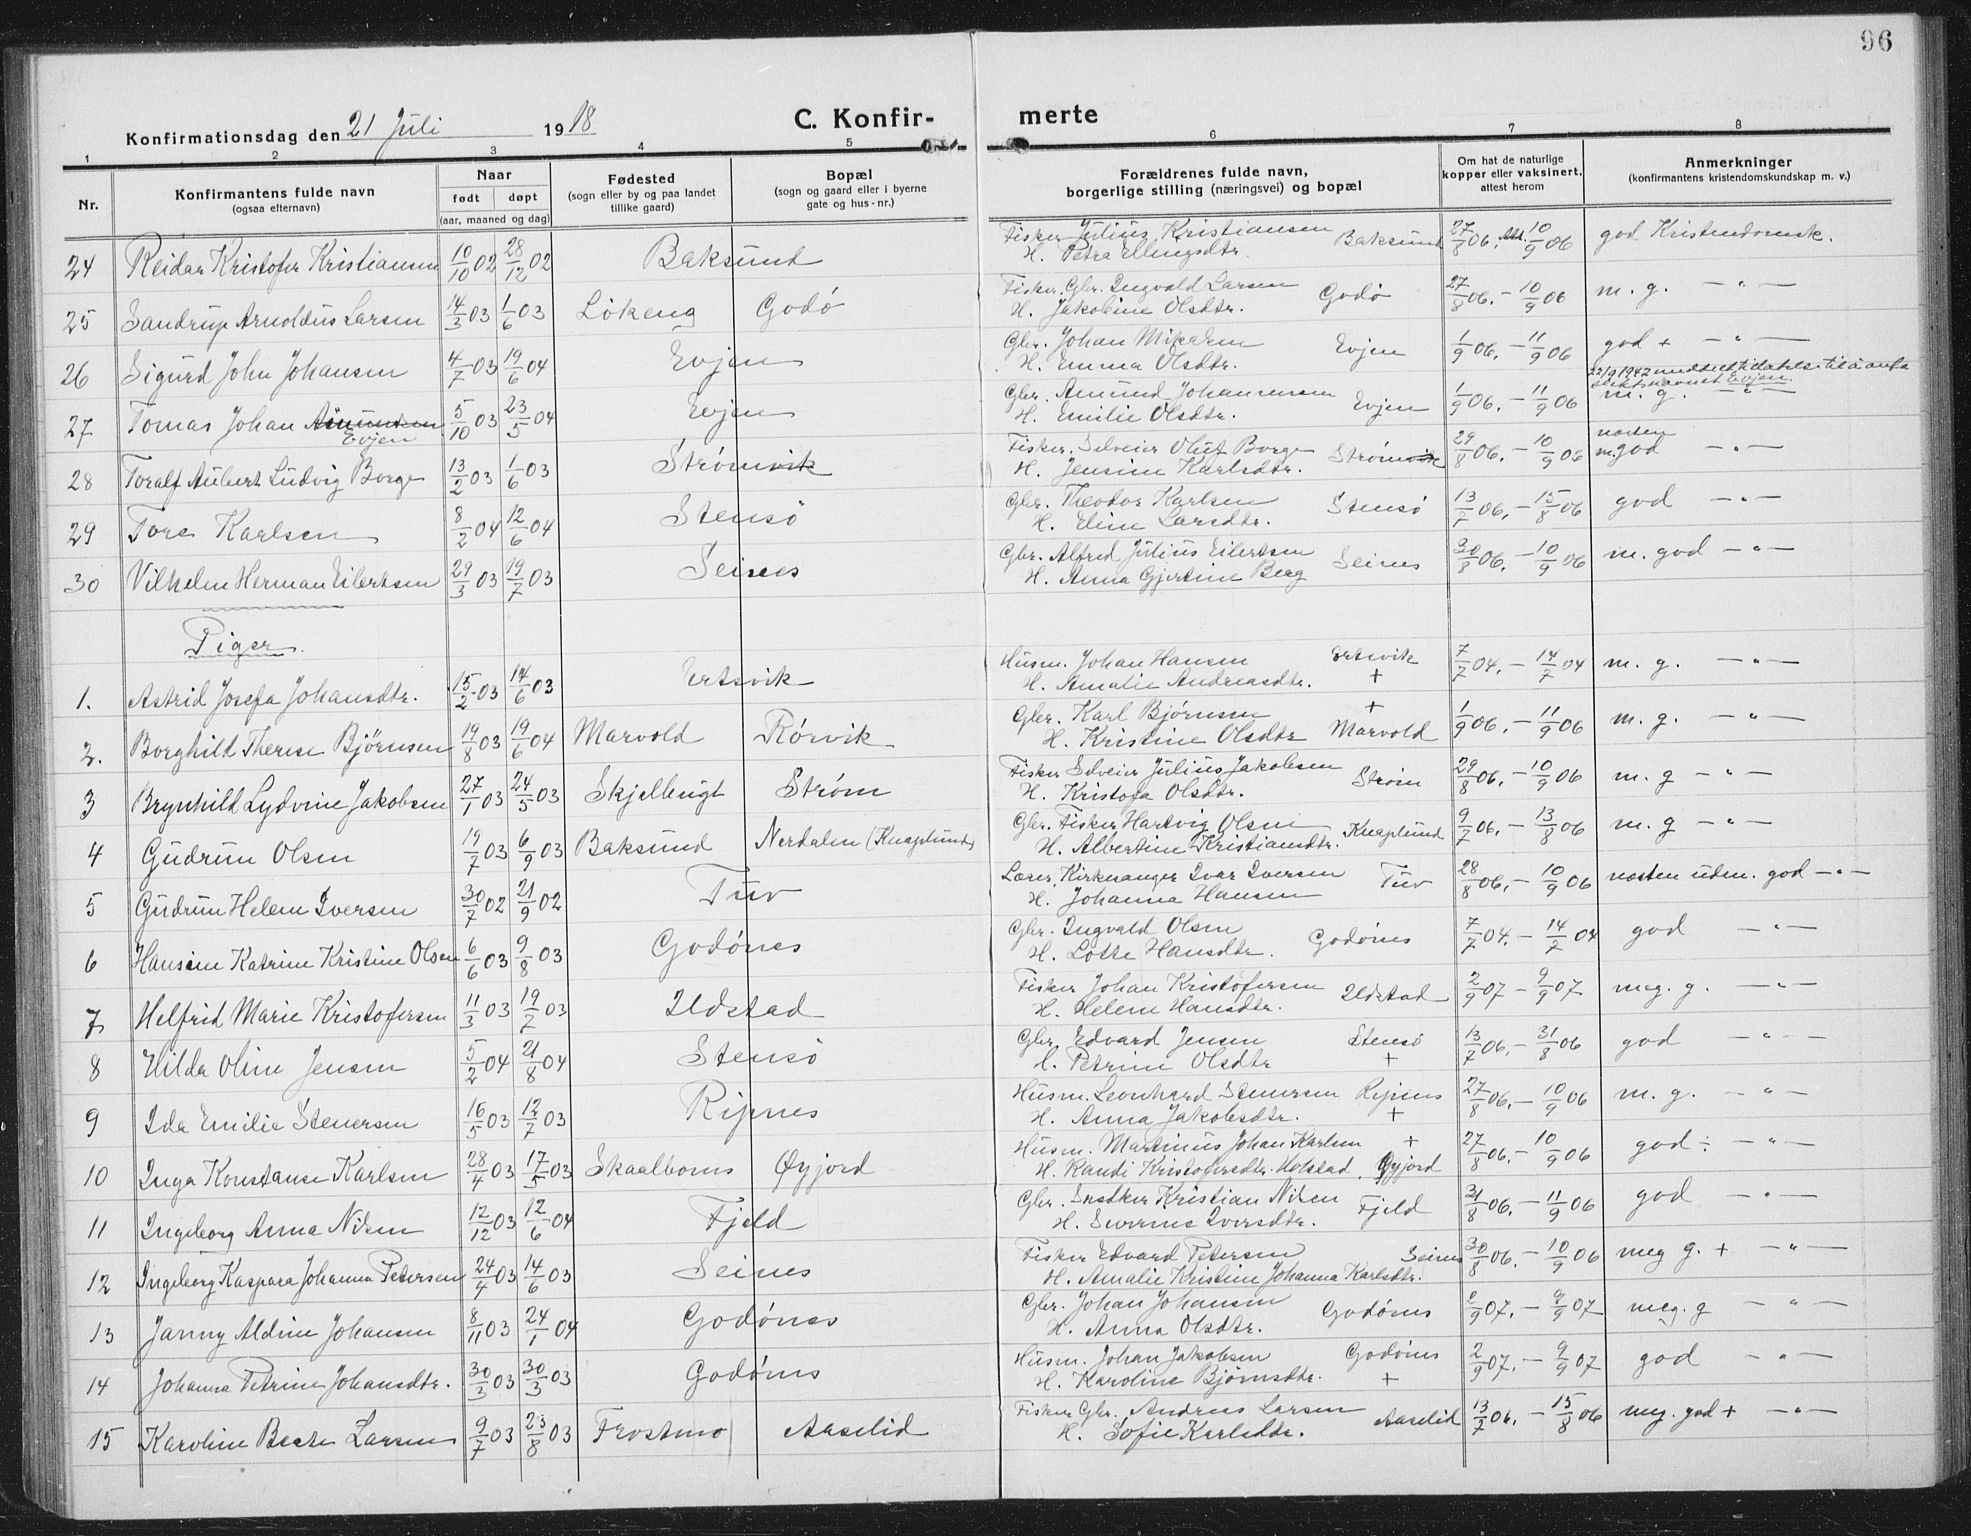 96
Konfirmationsdag den 21 Juli 1918 C. Konfir- merte
1 2 3 4 5 6 7 8
Nr. Konfirmantens fulde navn (ogsaa efternavn) Naar født døpt (aar, maaned og dag) Fødested (sogn eller by og paa landet tillike gaard) Bopæl (sogn og gaard eller i byerne gate og hus-nr.) Forældrenes fulde navn, borgerlige stilling (næringsvei) og bopæl Om hat de naturlige kopper eller vaksinert, attest herom Anmerkninger (konfirmantens kristendomskundskap m. v.)
24 Reidar Kristofer Kristiansen 10/10 02 28/12 02 Baksund Fisker Julius Kristiansen H. Petra Ellingsdtr. Baksund 27/8 06. 10/9 06 god Kristendomsk.
25 Sandrup Arnoldus Larsen 14/3 03 1/6 03 Løkeng Godø Fisker, Gbr. Ingvald Larsen H. Jakobine Olsdtr. Godø 27/8 06. – 10/9 06 m. g. – " –
26 Sigurd John Johansen 4/7 03 19/6 04 Evjen Gbr. Johan Mikalsen H. Emma Olsdtr. Evjen 1/9 06. – 11/9 06 god + – " –
27 Tomas Johan Amundsen Evjen 5/10 03 23/5 04 Evjen Gbr. Amund Johannessen H. Emilie Olsdtr. Evjen 1/9 06. – 11/9 06 22/9 1942 meddelt tilladelse til å anta slektsnavnet Evjen. m. g. – " –
28 Toralf Aubert Ludvig Borge 13/2 03 1/6 03 Strømvik Fisker. Selveier Oluf Borge H. Jensine Karlsdtr. Strømvik 29/8 06. – 10/9 06 næsten m. god – " –
29 Tore Karlsen 8/2 04 12/6 04 Stensø Gbr. Theodor Karlsen H. Eline Larsdtr. Stensø 13/7 06. – 15/8 06 god – " –
30 Vilhelm Herman Eilertsen 29/3 03 19/7 03 Seines Gbr. Alfred Julius Eilertsen H. Anna Gjertine Berg Seines 30/8 06. – 10/9 06 m. god – " –
Piger.
1. Astrid Josefa Johansdtr. 15/2 03 14/6 03 Ertsvik Husm. Johan Hansen H. Amalie Andreasdtr. Ertsvik + 7/7 04. – 14/7 04 m. g. – " –
2. Borghild Therese Bjørnsen 19/8 03 19/6 04 Marvold Rørvik Gbr. Karl Bjørnsen + H. Kristine Olsdtr Marvold 1/9 06. – 11/9 06 m. g. – " –
3 Brynhild Lydvine Jakobsen 27/1 03 24/5 03 Skjellugt Strøm Fisker Selveier Julius Jakobsen H. Kristofa Olsdtr. Strøm 29/8 06. – 10/9 06 m. g – " –
4 Gudrun Olsen 19/7 03 6/9 03 Baksund Nerdalen (Knaplund) Gbr. Fisker Hartvig Olsen H. Albertine Kristiansdtr. Knaplund 9/7 06. – 13/8 06 m. g – " –
5 Gudrun Helene Iversen 30/7 02 21/9 02 Tuv Lærer, Kirkesanger Ivar Iversen H. Johanna Hansen Tuv 28/8 06. – 10/9 06 næsten uden. god – " –
6 Hansine Katrine Kristine Olsen 6/6 03 9/8 03 Godønes Gbr. Ingvald Olsen H. Lotte Hansdtr. Godønes 7/7 04. – 14/7 04 god – " –
7 Helfrid Marie Kristofersen 11/3 03 19/7 03 Ildstad Fisker Johan Kristofersen H. Helene Hansdtr. Ildstad 2/9 07 – 9/9 07 meg. g. – " –
8 Hilda Oline Jensen 5/2 04 21/8 04 Stensø Gbr. Edvard Jensen H. Petrine Olsdtr Stensø + 13/7 06. – 31/8 06 god – " –
9 Ida Emilie Stenersen 16/5 03 12/7 03 Ripnes Husm. Leonhard Stenersen H. Anna Jakobsdtr. Ripnes + 27/8 06. – 10/9 06 m. g. – " –
10 Inga Konstanse Karlsen 28/4 03 17/5 03 Skaalbones Øyjord Husm. Martinus Johan Karlsen + H. Randi Kristofersdtr. Holstad, Øyjord 27/8 06. – 10/9 06 god ÷ – " –
11 Ingeborg Anna Nilsen 12/12 03 12/6 04 Fjeld Gbr. Snedker Kristian Nilsen H. Iversdtr. Fjeld 31/8 06. – 11/9 06 god – " –
12 Ingeborg Kaspara Johanna Petersen 24/4 03 14/6 03 Seines Fisker Edvard Petersen H. Amalie Kristine Johanna Karlsdtr. Seines 30/8 06. – 10/9 06 meg g. + – " –
13 Janny Aldine Johansen 8/11 03 24/1 04 Godønes Gbr. Johan Johansen H. Anna Olsdtr. Godønes 2/9 07. – 9/9 07 meg. g – " –
14 Johanna Petrine Johansdtr. 30/3 03 30/3 03 Godønes Husm. Johan Jakobsen H. Karoline Bjørnsdtr. Godønes + 2/9 07. – 9/9 07 god – " –
15 Karoline Larsen 9/7 03 23/8 03 Frostmo Aaselid Fisker Gbr. Andreas Larsen H. Sofie Karlsdtr. Aaselid 13/7 06. – 15/8 06 meg. god + – " –